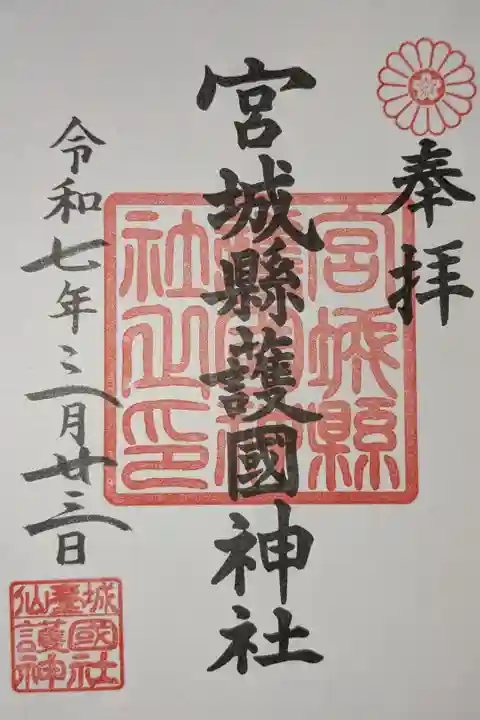 奉拝
宮城縣護國神社
令和七年三月廿三日
宮城縣
護國神
社之印
仙臺城
護國
神社